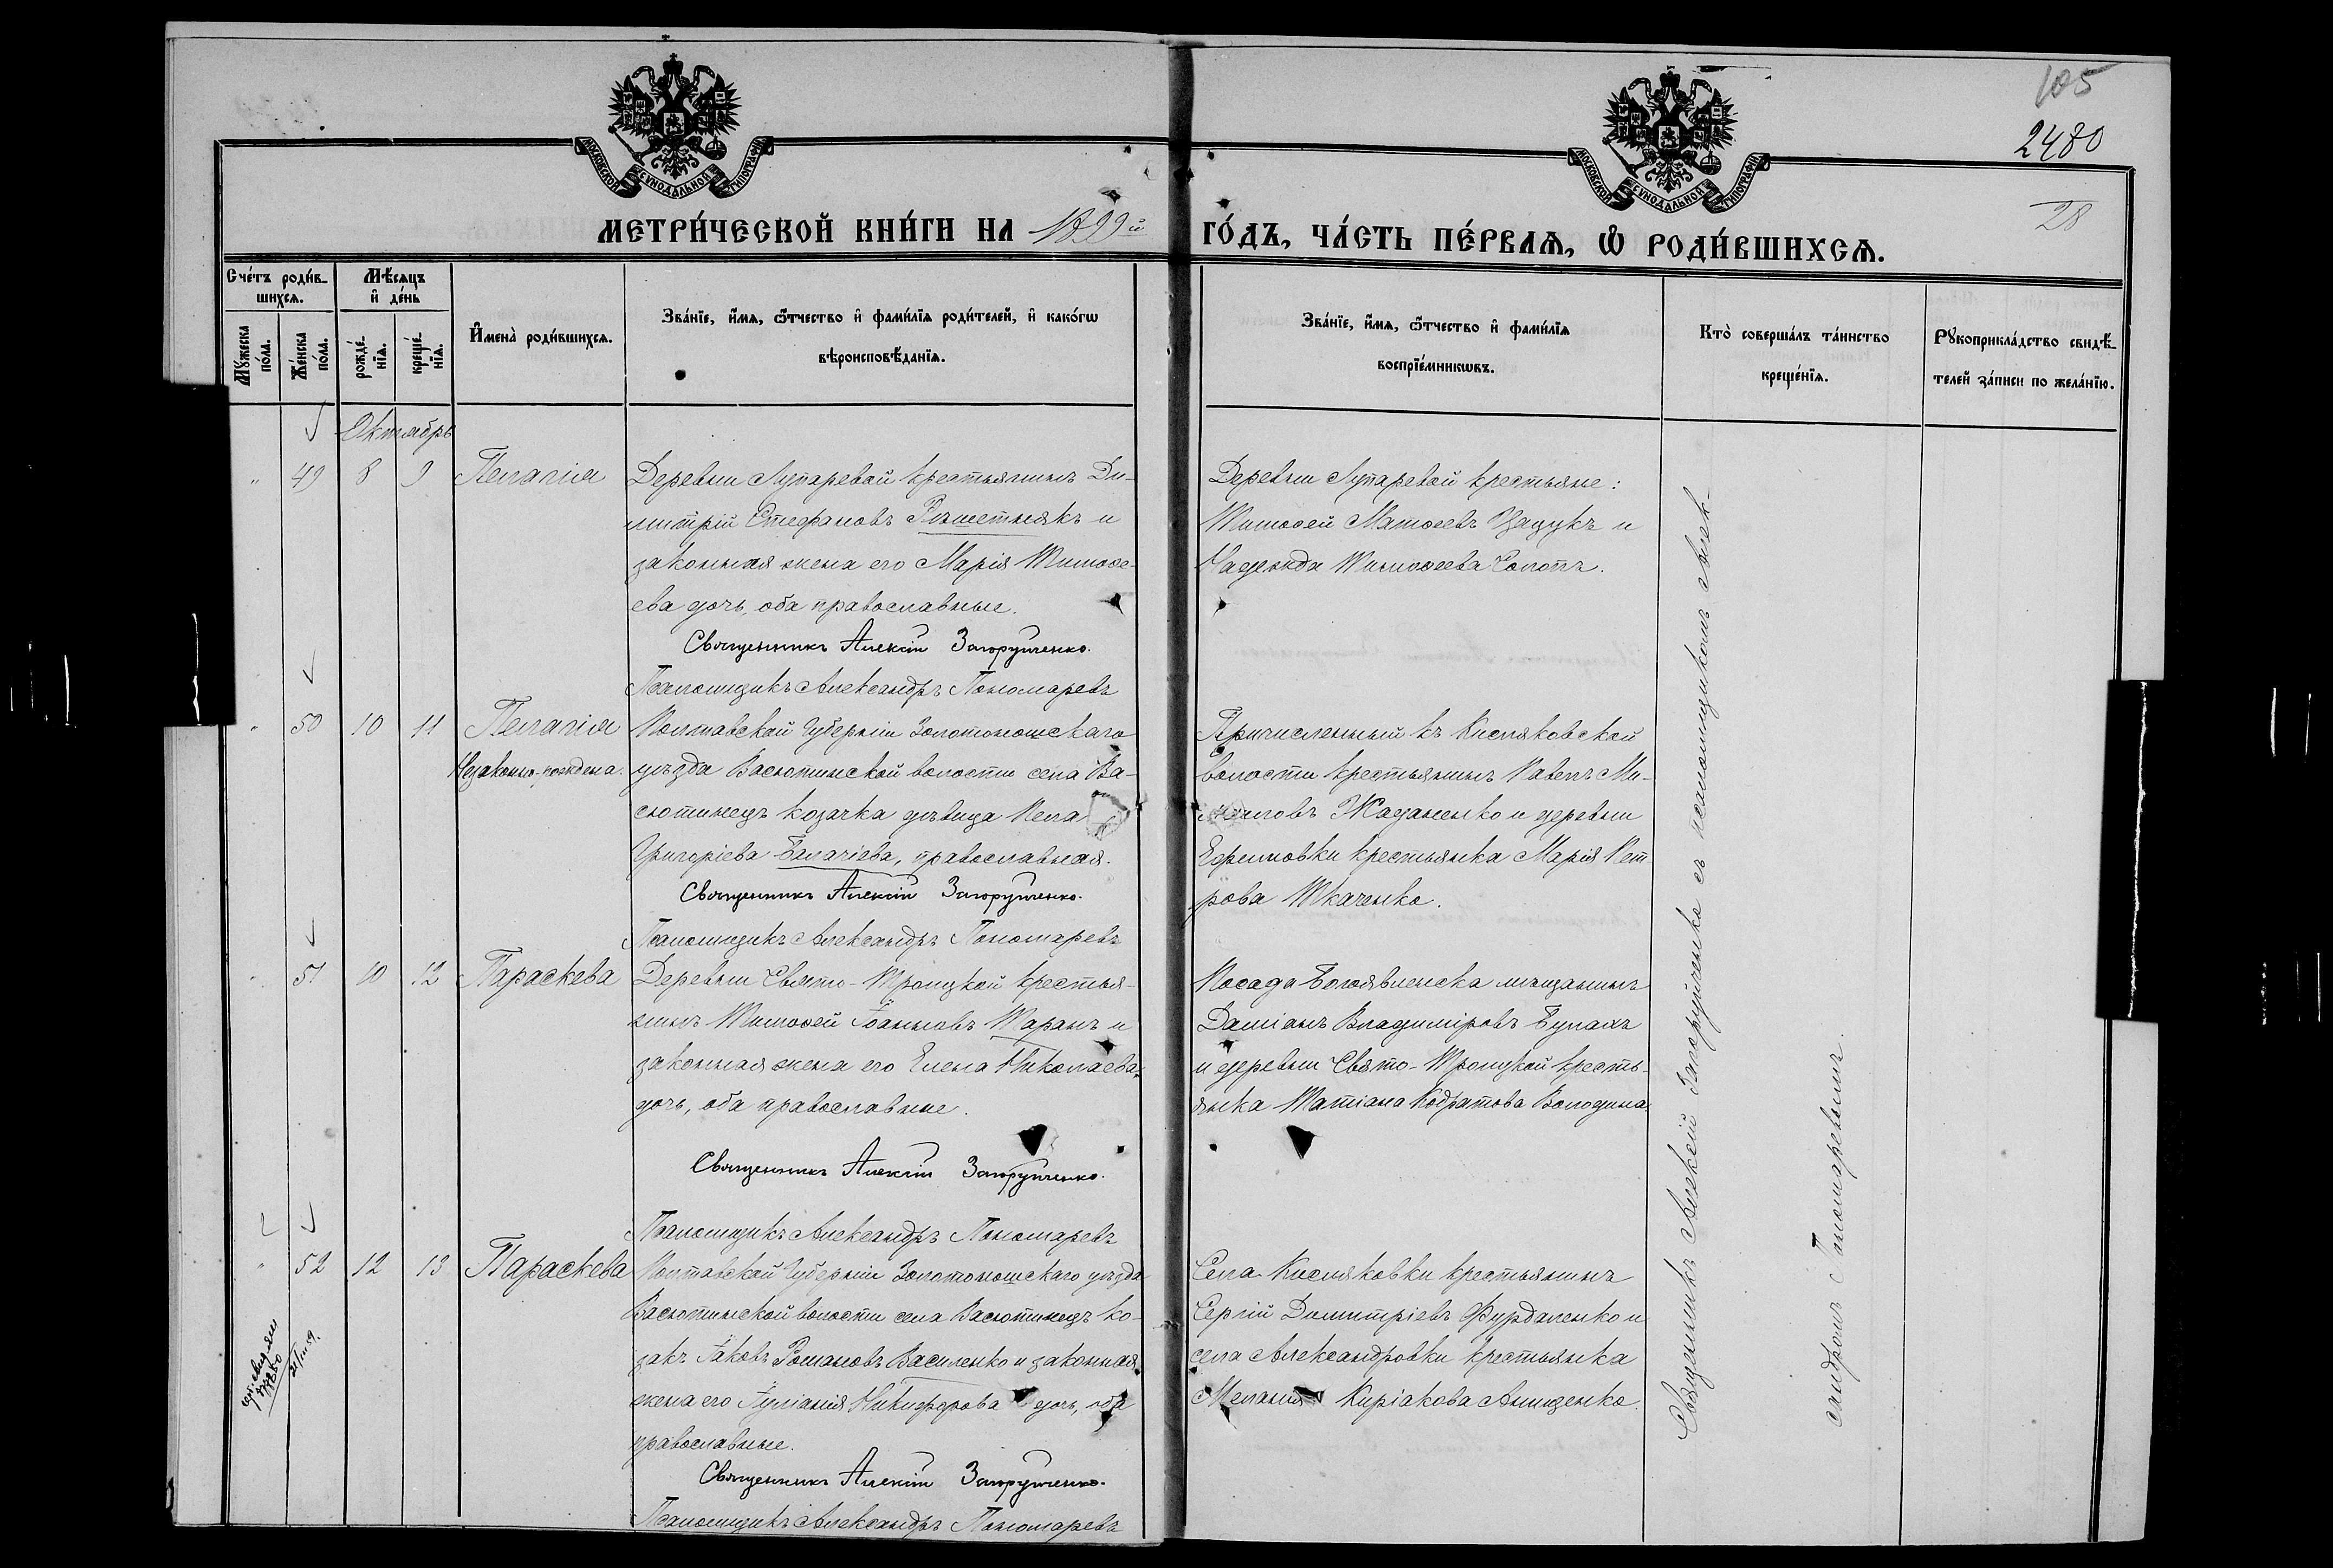 105
2480
28
МОСКОВСКОЙ СѴНОДАЛЬНОЙ ТИПОГРАФІИ
МОСКОВСКОЙ СѴНОДАЛЬНОЙ ТИПОГРАФІИ
МЕТРИ́ЧЕСКОЙ КНИ́ГИ НА 1899й
ГО́ДЪ, ЧА́СТЬ ПЕ́РВАѦ, Ѡ҆ РОДИ́ВШИХСѦ.
Сче́тъ роди́в-
шихсѧ.
Мꙋ́жеска
по́ла.
Же́нска
по́ла.
Мѣ́сѧцъ
и҆ де́нь
рожде́-
нїѧ.
креще́-
нїѧ.
И҆мена̀ роди́вшихсѧ.
Зва́нїе, и҆́мѧ, ѻ҆́тчество и҆ фами́лїѧ роди́телей, и҆ како́гѡ
вѣроисповѣ́данїѧ.
Зва́нїе, и҆́мѧ, ѻ҆́тчество и҆ фами́лїѧ
воспрїе́мникѡвъ.
Кто̀ соверша́лъ та́инство
креще́нїѧ.
Рꙋкоприкла́дство свидѣ́-
телей за́писи по жела́нїю.
Октябрь
" 49 8 9 Пелагія
Деревни Лупаревой крестьянинъ Ди-
митрій Стефановъ Рѣшетнякъ и
законная жена его Марія Тимоѳе-
ева дочь, оба православные.
Священникъ Алексій Загоруйченко.
Псаломщикъ Александръ Пономаревъ
Деревни Лупаревой крестьяне:
Тимоѳей Матѳеевъ Цацукъ и
Надежда Тимоѳеева
" 50 10 11 Пелагія
Незаконно-рождена.
Полтавской Губерніи Золотоношскаго
уѣзда Васютинской волости села Ва-
сютинецъ козачка дѣвица
Григоріева Балачіева, православная.
Священникъ Алексій Загоруйченко.
Псаломщикъ Александръ Пономаревъ
Причисленный къ Кисляковской
волости крестьянинъ Павелъ Ми-
хаиловъ Жаданенко и деревни
Ефимовки крестьянка Марія Пет-
рова Ткаченко.
" 51 10 12 Параскева
Деревни Свято-Троицкой крестья-
нинъ Тимоѳей Іоанновъ Таранъ и
законная жена его Елена Николаева
дочь, оба православные.
Священникъ Алексій Загоруйченко.
Псаломщикъ Александръ Пономаревъ
Посада Богоявленска мѣщанинъ
Даміанъ Владиміровъ Булахъ
и деревни Свято-Троицкой кресть-
янка Татіана Кодратова Володина
" 52 12 13 Параскева
Полтавской Губерніи Золотоношскаго уѣзда
Васютинской волости села Васютинецъ ко-
закъ Іаковъ Романовъ Василенко и законная
жена его Іуліанія Никифорова дочь, оба
православные.
Священникъ Алексій Загоруйченко.
Псаломщикъ Александръ Пономаревъ
Села Кисляковки крестьянинъ
Сергій Димитріевъ Фурдаленко и
села Александровки крестьянка
Меланія Киріакова Анищенко.
Священникъ Алексій Загоруйченко съ псаломщикомъ Алек-
сандромъ Пономаревымъ.